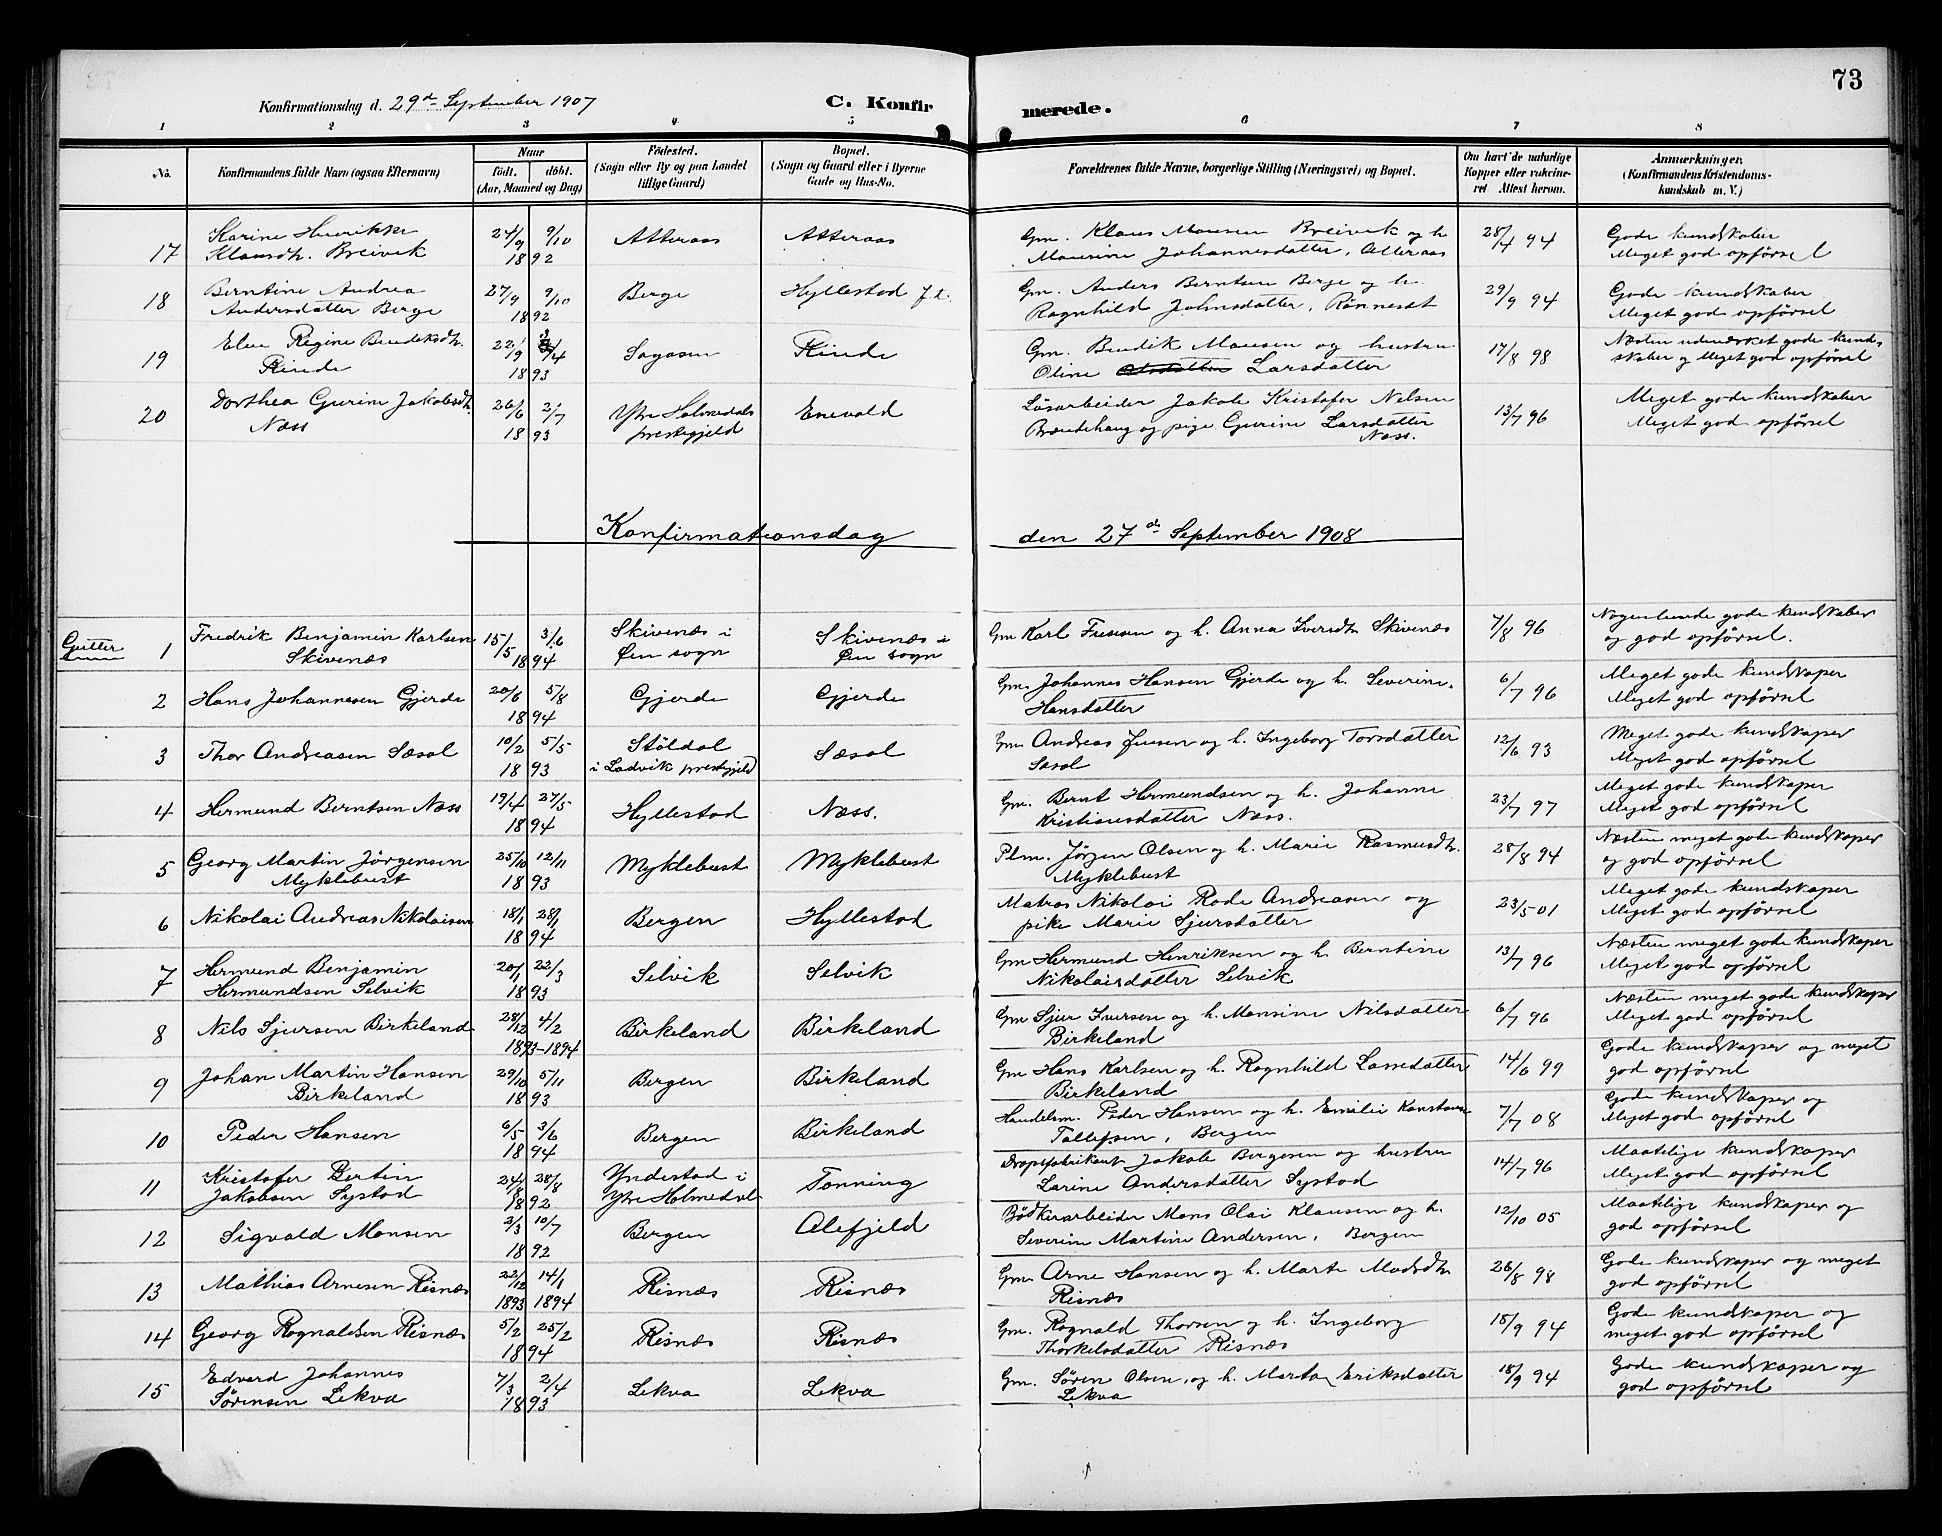 73
Konfirmationsdag d. 29de September 1907
C. Konfirmerede.
1 2 3 4 5 6 7 8
No.
Konfirmandens fulde Navn (ogsaa Efternavn)
Naar
født. døbt.
(Aar, Maaned og Dag)
Fødested.
(Sogn eller By og paa Landet
tillige Gaard)
Bopæl.
(Sogn og Gaard eller i Byerne
Gade og Hus-No.
Forældrenes fulde Navne, borgerlige Stilling (Næringsvei) og Bopæl.
Om havt de naturlige
Kopper eller vakcine-
ret Attest herom.
Anmærkninger.
(Konfirmandens Kristendoms-
kundskab m. V.)
17 Karine Henrikke 24/9 9/10 Atteraas Atteraas Gm. Klaus Monsen Breivik og h. 28/4 94 Gode kundskaber
Klausdtr. Breivik 1892 Maurine Johannesdatter, Atteraas Meget god opførsel
18 Berntine Andrea 27/9 9/10 Berge Hyllestad f.t. Gm. Anders Berntsen Berge og h. 29/9 94 Gode kundskaber
Andersdatter Berge 1892 Ragnhild Johnsdatter, Rønneset Meget god opførsel
19 Elen Regine Bendiksdtr. 22/9 3/4 Sagasen Rinde Gm. Bendik Monsen og hustru 17/8 98 Næsten udmærket gode kund-
Rinde 1893 Oline Larsdatter skaber og Meget god opførsel
20 Dorthea Gurine Jakobsdtr. 26/6 2/7 Ytre Holmedals Enevald Løsarbeider Jakob Kristofer Nilsen 13/7 96 Meget gode kundskaber
Næss 1893 prestegjeld Brændehaug og pige Gurine Larsdatter Meget god opførsel
Næss.
Konfirmationsdag den 27de September 1908
Gutter 1 Fredrik Benjamin Karlsen 15/5 3/6 Skivenæs i Skivenæs i Gm Karl Iversen og h. Anna Iversdtr Skivenæs 7/8 96 Nogenlunde gode kundskaber
Skivenæs 1894 Øen sogn Øen sogn og god opførsel.
2 Hans Johannesen Gjerde 20/6 5/8 Gjerde Gjerde Gm. Johannes Hansen Gjerde og h. Severine 6/7 96 Meget gode kundskaper
1894 Hansdatter Meget god opførsel
3 Thor Andreasen Sæsol 10/2 5/5 Støldal Sæsol Gm. Andreas Jensen og h. Ingeborg Torsdatter 12/6 93 Meget gode kundskaper
1893 i Ladvik prestegjeld Sæsol Meget god opførsel
4 Hermund Berntsen Næss 19/4 27/5 Hyllestad Næss. Gm. Bernt Hermundsen og h. Johanne 23/7 97 Meget gode kundskaper
1894 Kristiansdatter Næss. Meget god opførsel
5 Georg Martin Jørgensen 25/10 12/11 Myklebust Myklebust Plm. Jørgen Olsen og h. Marie Rasmusdtr. 28/8 94 Næsten meget gode kundskaper
Myklebust 1893 Myklebust og god opførsel
6 Nikolai Andreas Nikolaisen 18/1 28/1 Bergen Hyllestad Matros Nikolai Rode Andreasen og 23/5 01 Meget gode kundskaper
1894 pike Marie Sjursdatter Meget god opførsel
7 Hermund Benjamin 20/1 22/3 Selvik Selvik Gm Hermund Henriksen og h. Berntine 13/7 96 Næsten meget gode kundskaper
Hermundsen Selvik 1893 Nikolaisdatter Selvik Meget god opførsel
8 Nils Sjursen Birkeland 28/12 4/2 Birkeland Birkeland Gm Sjur Iversen og h. Monsine Nilsdatter 6/7 96 Næsten meget gode kundskaper
1893-1894 Birkeland Meget god opførsel
9 Johan Martin Hansen 29/10 5/11 Bergen Birkeland Gm Hans Karlsen og h. Ragnhild Lassedatter 14/6 99 Gode kundskaper og meget
Birkeland 1893 Birkeland god opførsel
10 Peder Hansen 6/5 3/6 Bergen Birkeland Handelsm. Peder Hansen og h. Emilie Konstanse 7/7 08 Gode kundskaper og
1894 Tollefsen, Bergen Meget god opførsel
11 Kristofer Bertin 24/8 28/8 Yndestad i Tonning Dropsfabrikant Jakob Bergesen og hustru 14/7 96 Maatelige kundskaper
Jakobsen Systad 1892 Ytre Holmedal Larine Andersdatter Systad Meget god opførsel
12 Sigvald Monsen 2/3 10/7 Bergen Alefjeld Bødkerarbeider Mons Olai Klausen og h. 12/10 05 Maatelige kundskaper og
1892 Severine Martine Andersen, Bergen god opførsel
13 Mathias Arnesen Risnæs 22/12 14/1 Risnæs Risnæs Gm. Arne Hansen og h. Marte Madsdtr 26/8 98 Gode kundskaper og meget
1893 1894 Risnæs god opførsel
14 Georg Ragnaldsen Risnæs 5/2 25/2 Risnæs Risnæs Gm. Ragnald Thorsen og h. Ingeborg 18/9 94 Gode kundskaper og
1894 Thorkelsdatter Risnæs meget god opførsel
15 Edvard Johannes 7/3 2/4 Lekva Lekva Gm. Søren Olsen, og h. Marta Eriksdatter 18/9 94 Gode kundskaper og
Sørensen Lekva 1893 Lekva god opførsel